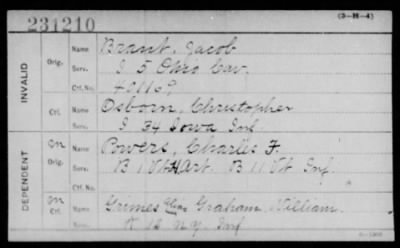 231210
(3-H-4)
INVALID
Orig.
Name Brant, Jacob
Serv. I 5 Ohio Cav.
Ctf. No.
Ctf.
Name Osborn, Christopher
Serv. I 34 Iowa Inf.
DEPENDENT
Orig.
Name Powers, Charles F.
Serv. B 1 Vt H Art. B 11 Vt Inf.
Ctf. No.
Ctf.
Name Grimes alias Graham, William
Serv. K 12 N.Y. Inf